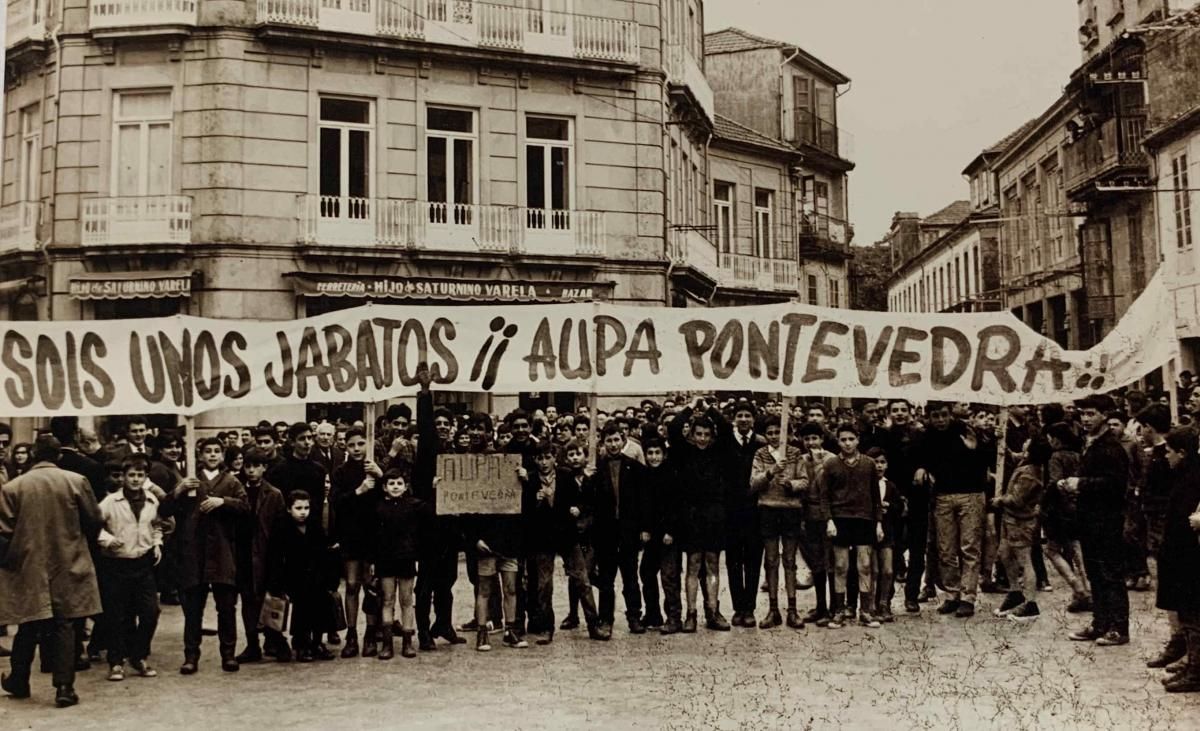 FERRETERÍA · HIJO de SATURNINO VARELA · BAZAR
HIJO de SATURNINO VARELA
SOIS UNOS JABATOS ¡¡ AUPA PONTEVEDRA !!
AUPA
PONTEVEDRA